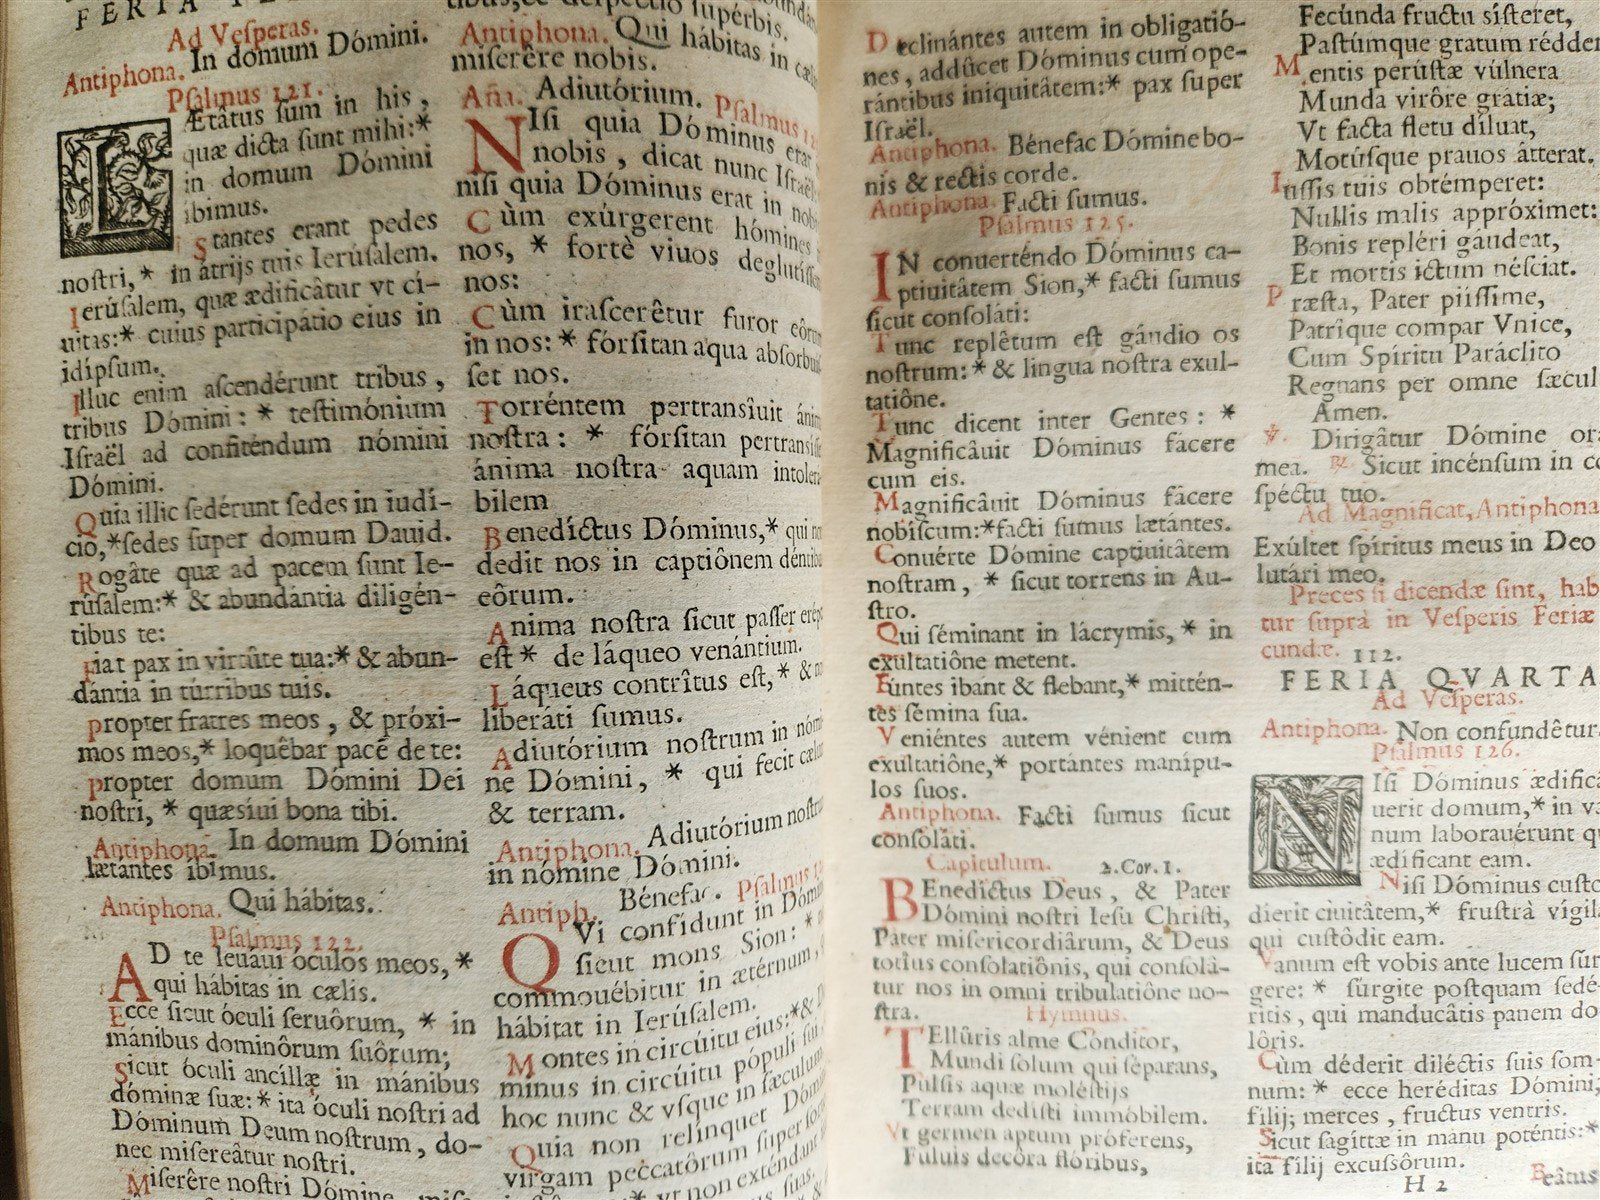 FERIA
Ad Vesperas.
Antiphona. In domum Dómini.
Psalmus 121.
LÆtátus sum in his,
quæ dicta sunt mihi:*
in domum Dómini
ibimus.
Stantes erant pedes
nostri,* in átrijs tuis Ierúsalem.
Ierúsalem, quæ ædificâtur vt cí-
uitas:* cuius participátio eius in
idípsum.
Illuc enim ascendérunt tribus,
tribus Dómini: * testimónium
Israël ad confiténdum nómini
Dómini.
Quia illic sedérunt sedes in iudí-
cio,*sedes super domum Dauid.
Rogâte quæ ad pacem sunt Ie-
rúsalem:* & abundántia diligén-
tibus te:
Fiat pax in virtûte tua:* & abun-
dántia in túrribus tuis.
Propter fratres meos, & próxi-
mos meos,* loquêbar pacē de te:
Propter domum Dómini Dei
nostri, * quæsíui bona tibi.
Antiphona. In domum Dómini
lætántes ibimus.
Antiphona. Qui hábitas.
Psalmus 122.
AD te leuáui óculos meos, *
qui hábitas in cælis.
Ecce sicut óculi seruôrum, * in
mánibus dominôrum suôrum;
Sicut óculi ancíllæ in mánibus
dóminæ suæ: * ita óculi nostri ad
Dóminum Deum nostrum, do-
nec misereâtur nostri.
Miserêre nostri Dómine
despéctio supérbis.
Antiphona. Qui hábitas in cælis
miserêre nobis.
Aña. Adiutórium. Psalmus
NIsi quia Dóminus erat
nobis, dicat nunc Israël
nisi quia Dóminus erat in nobis
Cùm exúrgerent hómines
nos, * fortè viuos deglutíssent
nos:
Cùm irascerêtur furor eôrum
in nos: * fórsitan aqua absorbuís-
set nos.
Torréntem pertransîuit ánima
nostra: * fórsitan pertransísset
ánima nostra aquam intolerá-
bilem
Benedíctus Dóminus,* qui non
dedit nos in captiônem déntibus
eôrum.
Anima nostra sicut passer erépta
est * de láqueo venántium.
Láqueus contrîtus est,* & nos
liberáti sumus.
Adiutórium nostrum in nómi-
ne Dómini, * qui fecit cælum
& terram.
Antiphona. Adiutórium nostrum
in nómine Dómini.
Antiph. Bénefac. Psalmus
QVi confídunt in Dómino
sicut mons Sion: *
commouébitur in ætérnum,
hábitat in Ierúsalem.
Montes in circúitu eius:* & Dó-
minus in circúitu pópuli sui
hoc nunc & vsque in sæculum
Quia non relinquet Dóminus
virgam peccatôrum super sortem
* vt non exténdant
suas.
Declinántes autem in obligatió-
nes, addúcet Dóminus cum ope-
rántibus iniquitâtem:* pax super
Israël.
Antiphona. Bénefac Dómine bo-
nis & rectis corde.
Antiphona. Facti sumus.
Psalmus 125.
IN conuerténdo Dóminus ca-
ptiuitâtem Sion,* facti sumus
sicut consoláti:
Tunc replêtum est gáudio os
nostrum: * & lingua nostra exul-
tatiône.
Tunc dicent inter Gentes: *
Magnificâuit Dóminus fácere
cum eis.
Magnificâuit Dóminus fácere
nobíscum:*facti sumus lætántes.
Conuérte Dómine captiuitâtem
nostram, * sicut torrens in Au-
stro.
Qui séminant in lácrymis, * in
exultatiône metent.
Euntes ibant & flebant,* mittén-
tes sémina sua.
Veniéntes autem vénient cum
exultatiône,* portántes manípu-
los suos.
Antiphona. Facti sumus sicut
consoláti.
Capitulum. 2.Cor.1.
BEnedíctus Deus, & Pater
Dómini nostri Iesu Christi,
Pater misericordiârum, & Deus
totíus consolatiônis, qui consolá-
tur nos in omni tribulatiône no-
stra. Hymnus.
TEllûris alme Cónditor,
Mundi solum qui séparans,
Pulsis aquæ moléstijs
Terram dedísti immóbilem.
Vt germen aptum próferens,
Fuluis decôra flóribus,
Fecúnda fructu sísteret,
Pastúmque gratum rédderet
Mentis perústæ vúlnera
Munda virôre grátiæ;
Vt facta fletu díluat,
Motúsque prauos átterat.
Iussis tuis obtémperet:
Nullis malis appróximet:
Bonis repléri gáudeat,
Et mortis ictum nésciat.
Præsta, Pater piíssime,
Patríque compar Vnice,
Cum Spíritu Paráclito
Regnans per omne sæcul
Amen.
℣. Dirigâtur Dómine orá
mea. ℟. Sicut incénsum in co
spéctu tuo.
Ad Magnificat, Antiphona
Exúltet spíritus meus in Deo
lutári meo.
Preces si dicendæ sint, hab
tur suprà in Vesperis Feriæ
cundæ. 112.
FERIA QVARTA
Ad Vesperas.
Antiphona. Non confundêtur.
Psalmus 126.
NIsi Dóminus ædificá
uerit domum,* in va
num laborauérunt qu
ædíficant eam.
Nisi Dóminus custo
díerit ciuitâtem,* frustrà vígila
qui custôdit eam.
Vanum est vobis ante lucem súr
gere: * súrgite postquam sedé-
ritis, qui manducâtis panem do
lôris.
Cùm déderit diléctis suis som-
num: * ecce heréditas Dómini,
fílij; merces, fructus ventris.
Sicut sagíttæ in manu poténtis:*
ita fílij excussôrum.
H 2 Beâtus